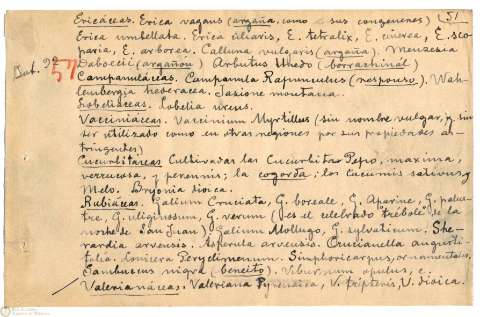 Ericáceas. Erica vagans (argaña, como sus congéneres) (51
Erica umbellata. Erica ciliaris, E. tetralix, E. cinerea, E. sco-
paria, E. arborea. Calluna vulgaris (argaña). Menziesia
Daboecii (argañon) Arbutus Unedo (borrachinal)
Campanuláceas. Campanula Rapunculus (responso). Wah-
lembergia hederacea. Jasione montana.
Lobeliáceas. Lobelia urens.
Vacciniáceas. Vaccinium Myrtillus (sin nombre vulgar, y sin
ser utilizado como en otras regiones por sus propiedades as-
tringentes)
Cucurbitáceas Cultivadas las Cucurbita Pepo, maxima,
verrucosa, y perennis; la cogorda; los cucumis sativus y
Melo. Bryonia dioica.
Rubiáceas. Galium Cruciata, G. boreale, G. Aparine, G. palus-
tre, G. uliginosum, G. verum (es el celebrado trébole de la
noche de San Juan) Galium Mollugo, G. sylvaticum. She-
rardia arvensis. Asperula arvensis. Crucianella angusti-
folia. Lonicera Peryclimenum. Simphoricarpus, ornamentales.
Sambucus nigra (beneito). Viburnum opulus, c.
Valerianáceas. Valeriana Pyrenaica, V. tripteris, V. dioica.
57